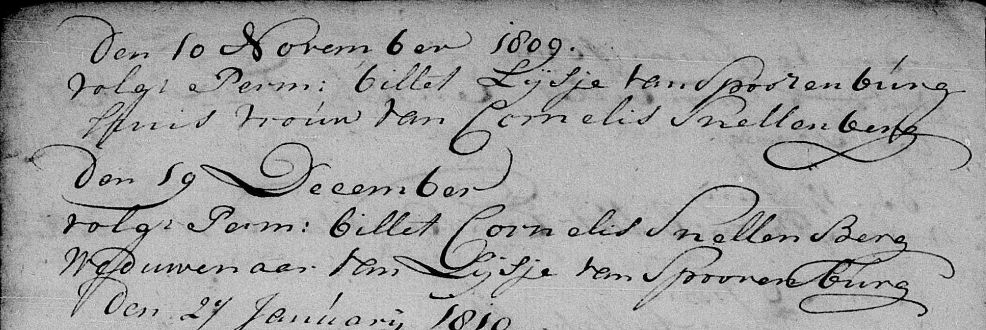 Den 10 November 1809.
volgs Perm: billet Lijsje van Spoorenburg
Huis vrouw van Cornelis Snellenberg
Den 19 December
volgs Perm: billet Cornelis Snellenberg
Weduwenaar van Lijsje van Spoorenburg
Den 27 Januarij 1810